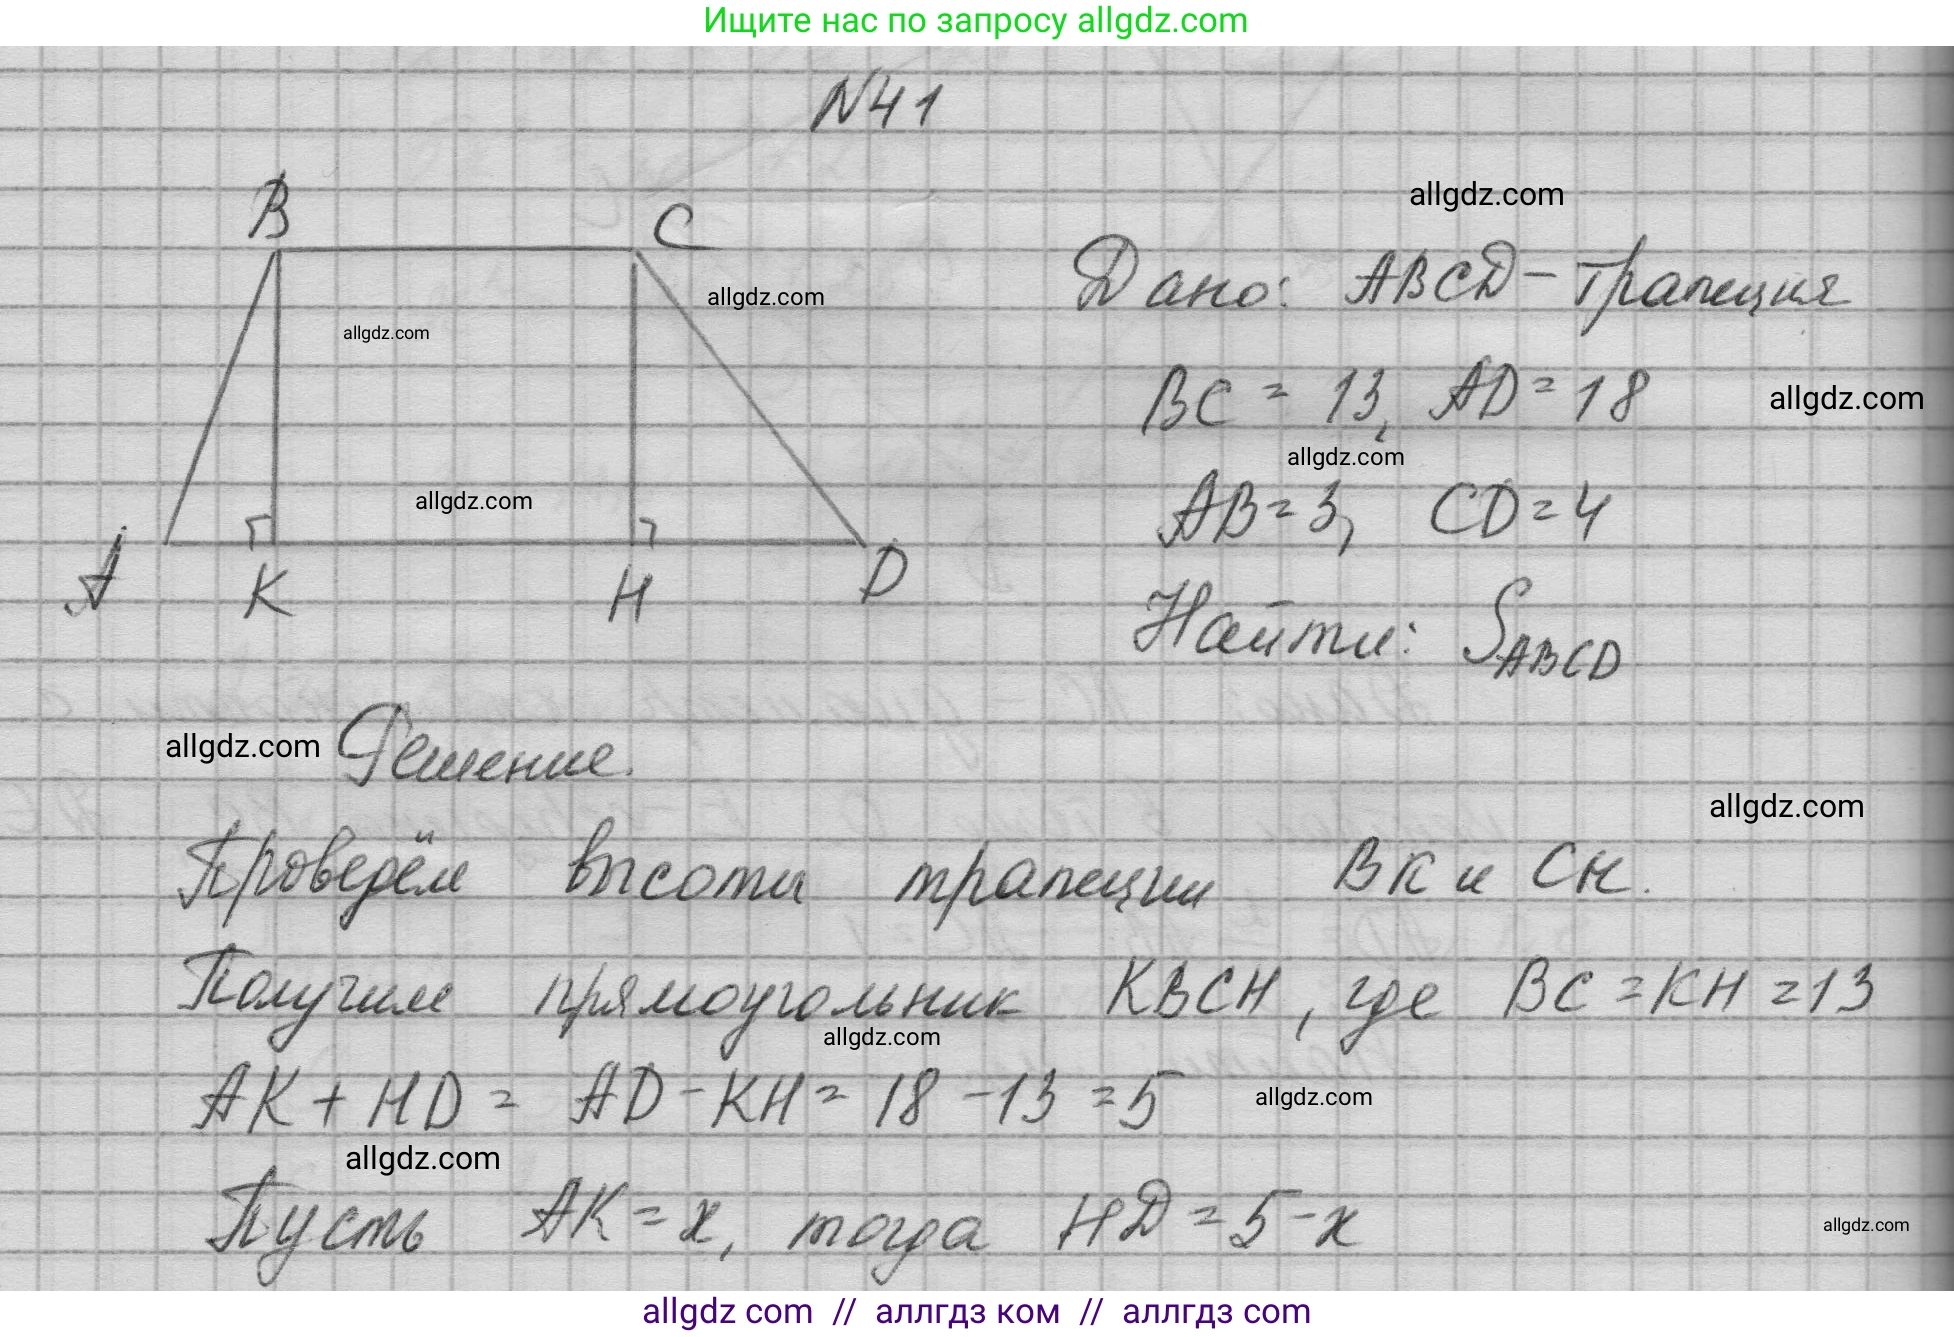 Ищите нас по запросу allgdz.com
N41
B
C
allgdz.com
allgdz.com
allgdz.com
Дано: ABCD - трапеция
BC = 13, AD = 18
allgdz.com
allgdz.com
allgdz.com
AB = 3, CD = 4
A
K
H
D
Найти: S_ABCD
allgdz.com
Решение.
allgdz.com
Проведём высоты трапеции BK и CH.
Получим прямоугольник KBCH, где BC = KH = 13
allgdz.com
AK + HD = AD - KH = 18 - 13 = 5
allgdz.com
allgdz.com
Пусть AK = x, тогда HD = 5 - x
allgdz.com
allgdz com // аллгдз ком // аллгдз com